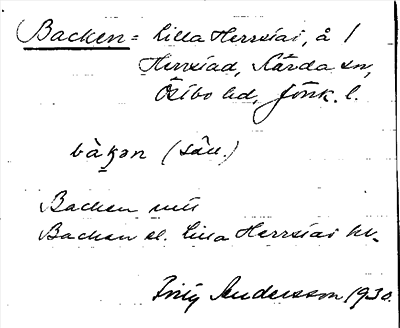 Backen = Lilla Herrstad, å 1
Herrstad, Kärda sn,
Östbo hd, Jönk. l.
bàkən (säll.)
Backen
Backen el. Lilla Herrstad
Andersson 1930.